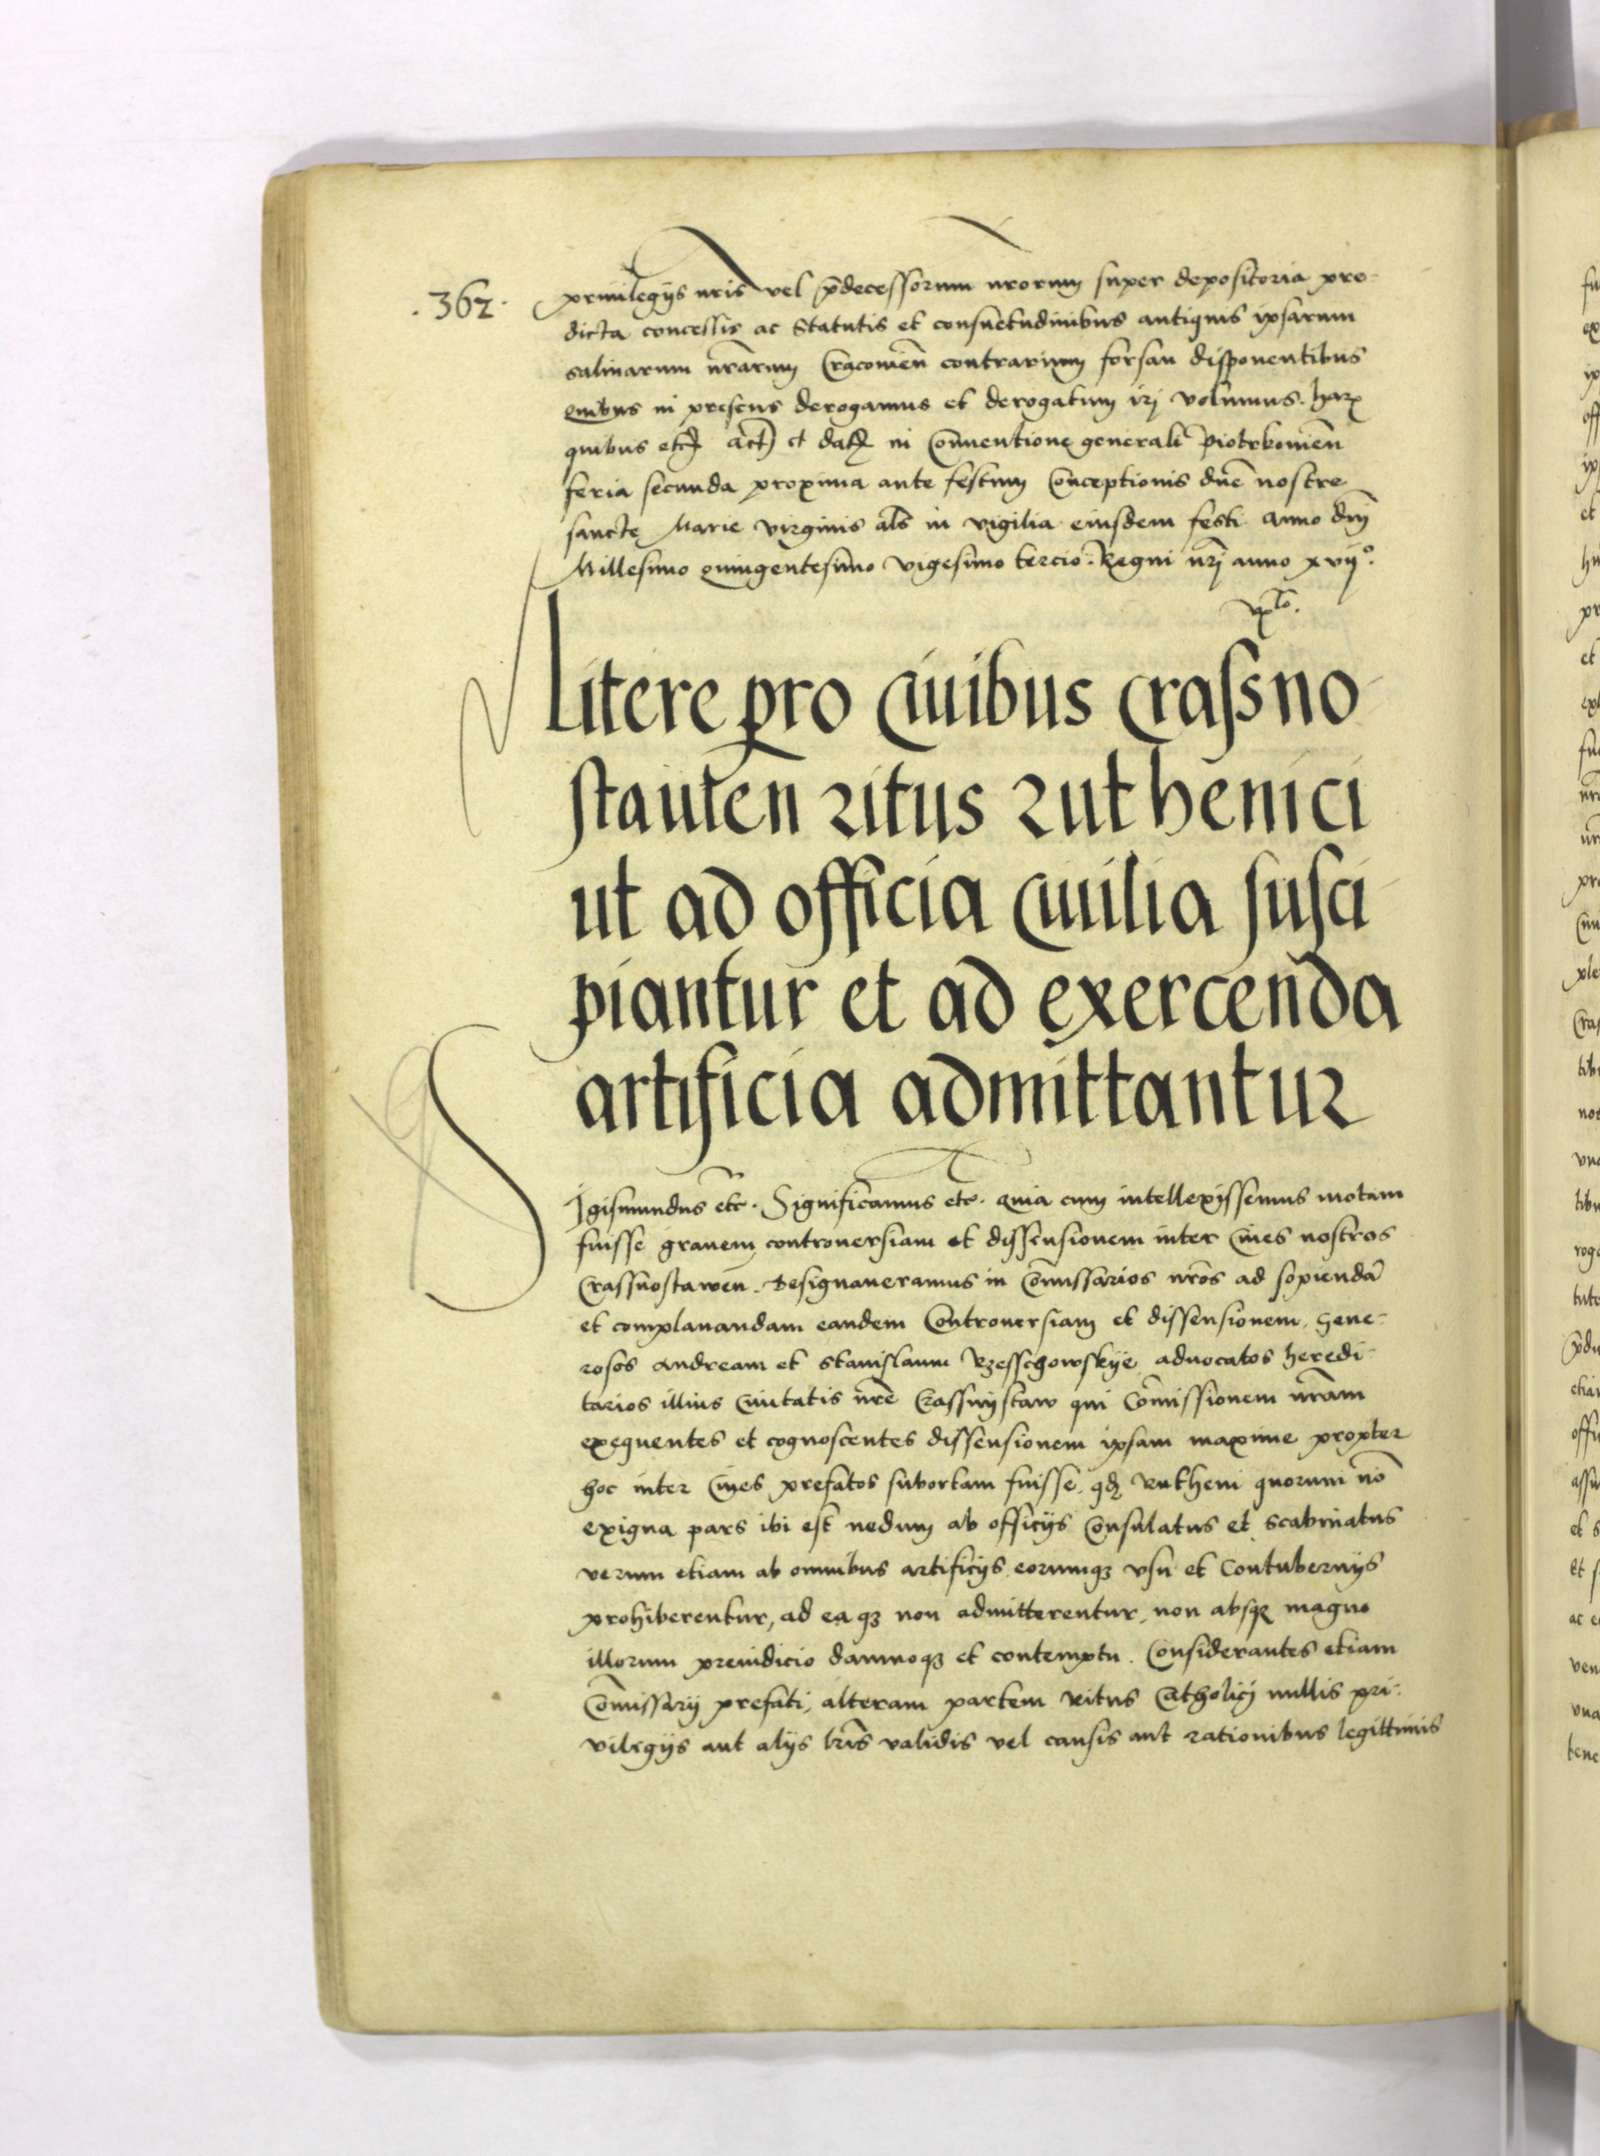 .362.
priuilegijs nr̄is vel p̄decessorum nrorum super depositoria pre-
dicta concessis ac Statutis et consuetudinibus antiquis ipsarum
salinarum nr̄arum Cracouien̄ contrarium forsan disponentibus
quibus in presens derogamus et derogatum irj volumus. harꝝ
quibus etc̄ act̄ et datꝝ in Conuentione generali Piotrkouien̄
feria secunda proxima ante festum Conceptionis dn̄e nostre
sancte Marie virginis als̄ in vigilia eiusdem festi Anno dn̄j
Millesimo quingentesimo vigesimo tercio. Regni nr̄j anno xvijº.
Litere pro Ciuibus Crassno-
stauien̄ ritus ruthenici
ut ad officia Ciuilia susci-
piantur et ad exercenda
artificia admittantur
SIgismundus etc̄. Significamus etc. quia cum intellexissemus motam
fuisse grauem controuersiam et dissensionem inter Ciues nostros
Crassnostawien̄. designaueramus in Com̄issarios nr̄os ad sopiendā
et complanandam eandem Controuersiam et dissensionem, Gene-
rosos Andream et Stanislaum Rzesschowskije aduocatos heredi-
tarios illius Ciuitatis nr̄e Crassnystaw qui Com̄issionem nr̄am
exequentes et cognoscentes dissensionem ipsam maxime propter
hoc inter Ciues prefatos subortam fuisse, qꝫ Rutheni quorum nō
exigua pars ibi est nedum ab officijs Consulatus et Scabinatus
verum etiam ab omnibus artificijs eorumqꝫ vsu et Contubernijs
prohiberentur, ad ea qꝫ non admitterentur, non absqꝫ magno
illorum preiudicio damnoqꝫ et contemptu. Considerantes etiam
Com̄issarij prefati, alteram partem ritus Catholicj nullis pri-
uilegijs aut alijs lr̄is validis vel causis aut rationibus legittimis